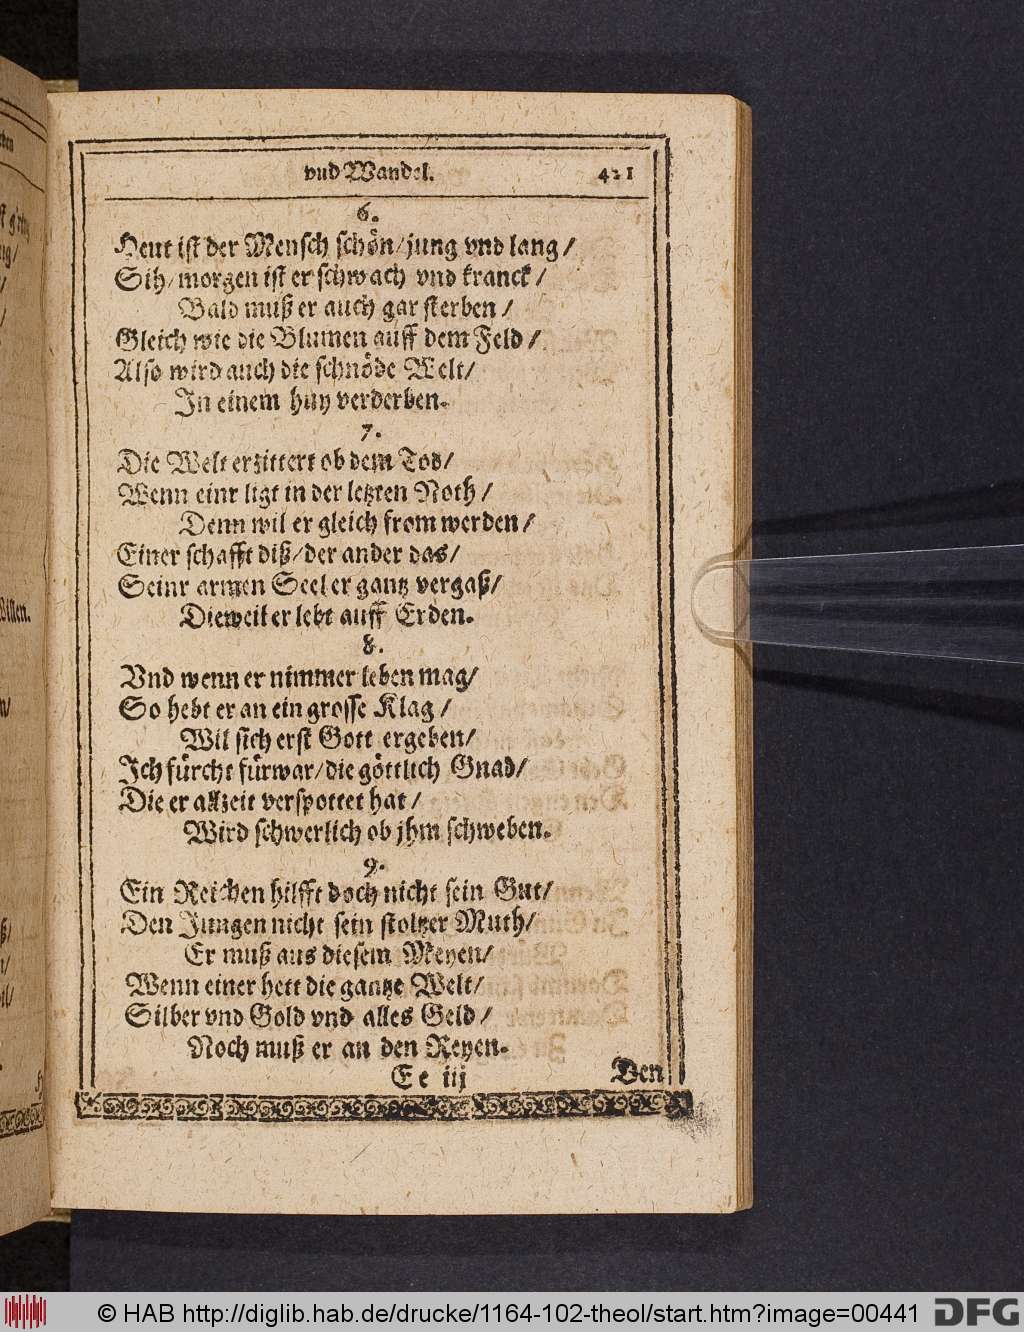 vnd Wandel. 421
6.
Heut ist der Mensch schön/jung vnd lang/
Sih/morgen ist er schwach vnd kranck/
Bald muß er auch gar sterben/
Gleich wie die Blumen auff dem Feld/
Also wird auch die schnöde Welt/
In einem huy verderben.
7.
Die Welt erzittert ob dem Tod/
Wenn einr ligt in der letzten Noth/
Denn wil er gleich from werden/
Einer schafft diß/der ander das/
Seinr armen Seel er gantz vergaß/
Dieweil er lebt auff Erden.
8.
Vnd wenn er nimmer leben mag/
So hebt er an ein grosse Klag/
Wil sich erst Gott ergeben/
Ich fürcht fürwar/die göttlich Gnad/
Die er allzeit verspottet hat/
Wird schwerlich ob jhm schweben.
9.
Ein Reichen hilfft doch nicht sein Gut/
Den Jungen nicht sein stoltzer Muth/
Er muß aus diesem Meyen/
Wenn einer hett die gantze Welt/
Silber vnd Gold vnd alles Geld/
Noch muß er an den Reyen.
Ee iij Den
© HAB http://diglib.hab.de/drucke/1164-102-theol/start.htm?image=00441 DFG